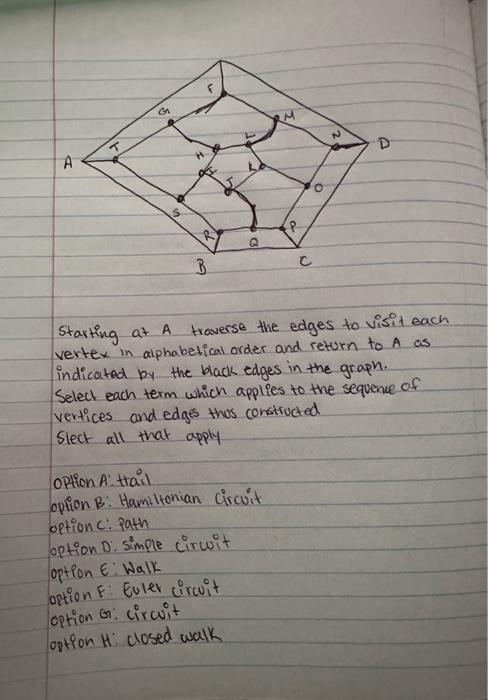 F
G
M
L
N
D
T
H
A
K
I
J
O
S
R
P
Q
B
C
Starting at A traverse the edges to visit each
vertex in alphabetical order and return to A as
indicated by the black edges in the graph.
Select each term which applies to the sequence of
vertices and edges thus constructed
Slect all that apply
option A: trail
option B: Hamiltonian Circuit
option C: Path
option D: simple circuit
option E: Walk
option F: Euler circuit
option G: circuit
option H: closed walk